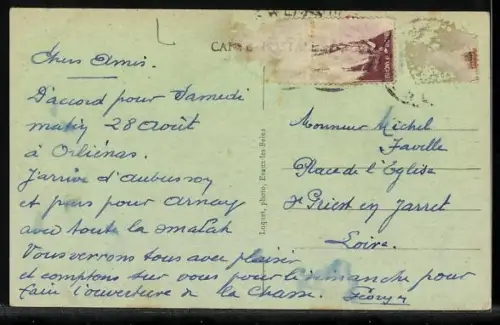 CARTE POSTALE
Chers Amis.
D'accord pour Samedi
matin 28 Août
à Orliénas.
J'arrive d'Aubusson
et puis pour Arnay
avec toute la smalah
Vous verrons tous avec plaisir
et comptons sur vous pour le dimanche pour
faire l'ouverture de la chasse.
Luquet, photo, Evaux-les-Bains
Monsieur Michel
Faville
Place de l'Eglise
St Priest en Jarret
Loire.